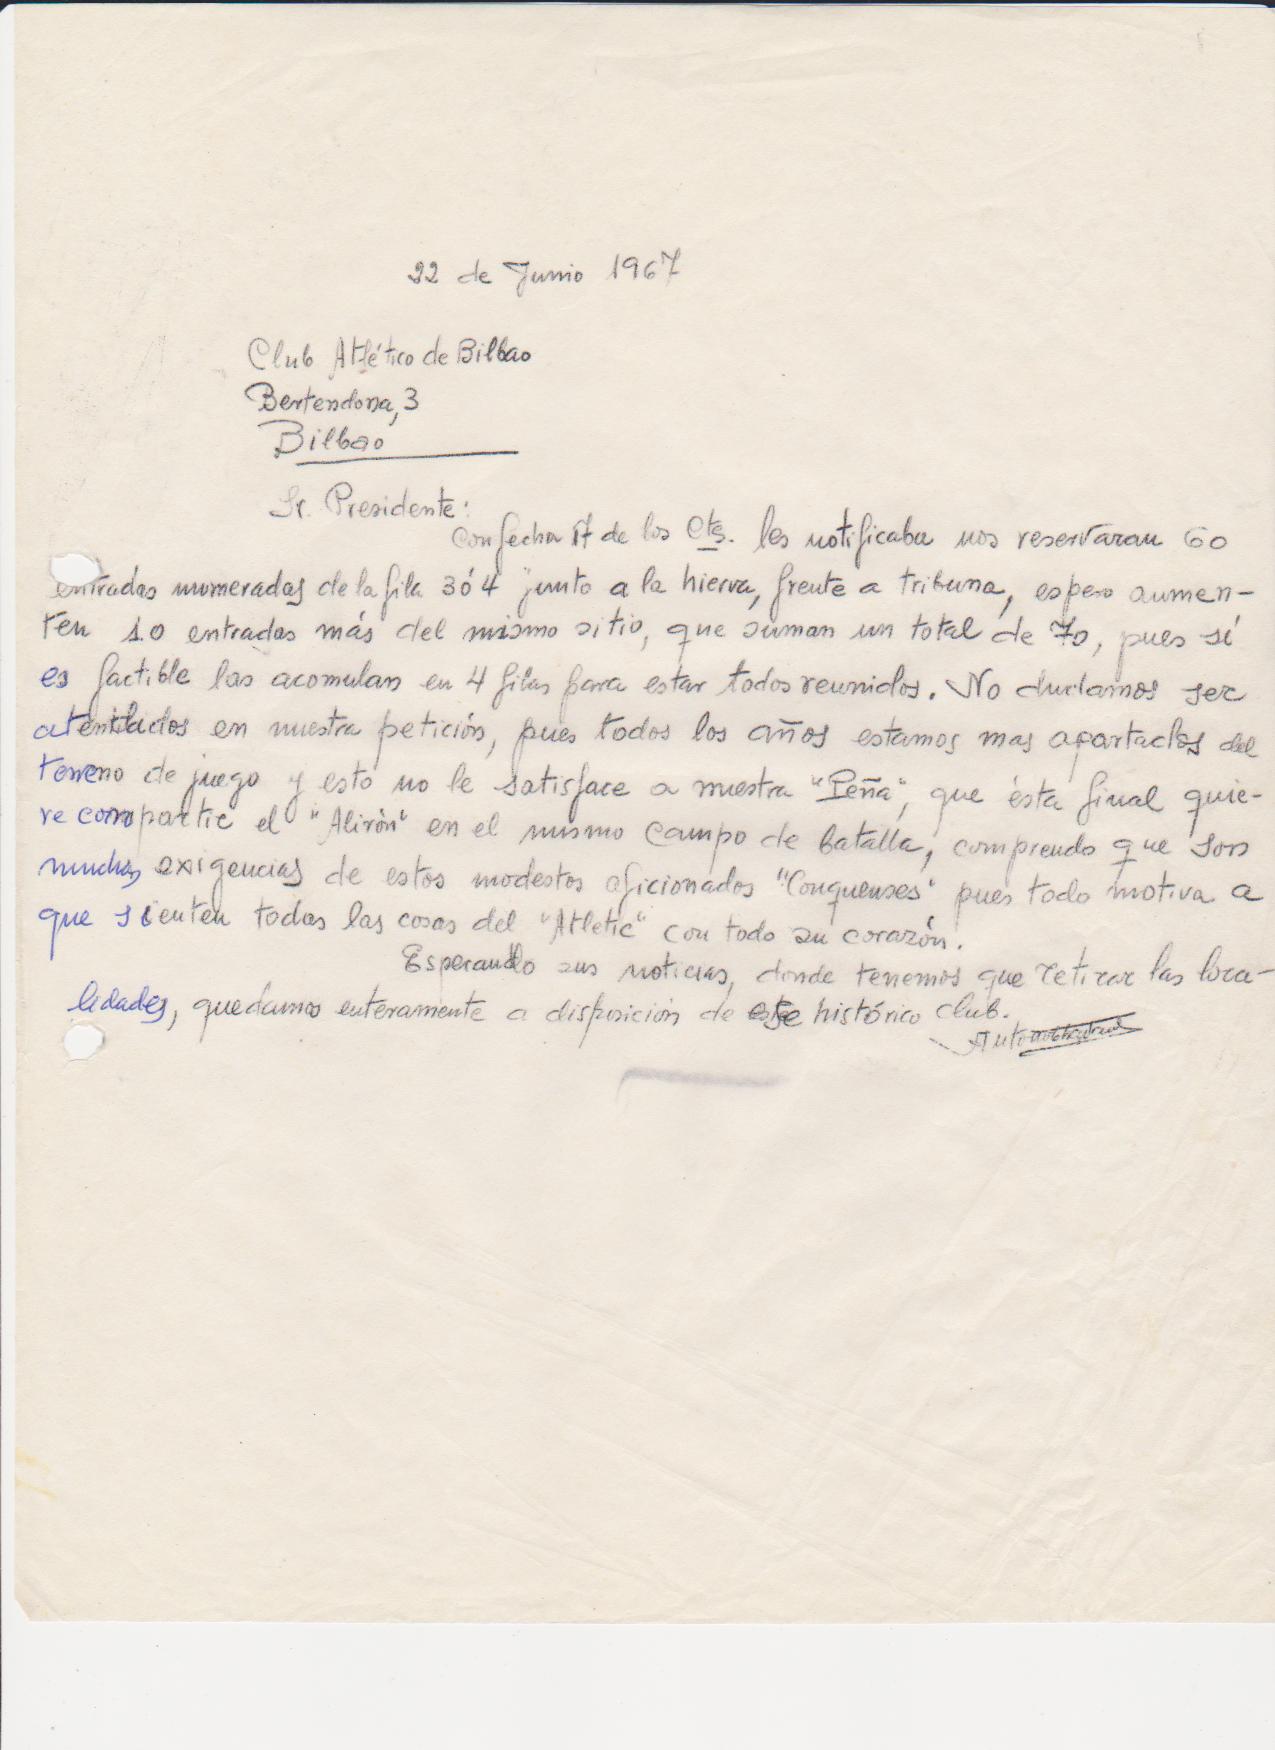 22 de Junio 1967
Club Atlético de Bilbao
Bertendona, 3
Bilbao
Sr. Presidente:
Con fecha 17 de los Cts. les notificaba nos reservaran 60
entradas numeradas de la fila 3 ó 4 junto a la hierva, frente a tribuna, espero aumen-
ten 10 entradas más del mismo sitio, que suman un total de 70, pues sí
es factible las acomulan en 4 filas para estar todos reunidos. No dudamos ser
atendidos en nuestra petición, pues todos los años estamos mas apartados del
terreno de juego y esto no le satisface a nuestra "Peña", que ésta final quie-
re compartir el "Alirón" en el mismo campo de batalla, comprendo que son
muchas exigencias de estos modestos aficionados "Conquenses" pues todo motiva a
que sienten todas las cosas del "Atletic" con todo su corazón.
Esperando sus noticias, donde tenemos que retirar las loca-
lidades, quedamos enteramente a disposición de este histórico club.